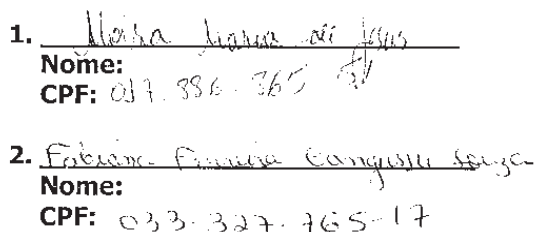 1. Maria de Jesus
Nome:
CPF: 017.886.365
2. Fabiana Ferreira Cangussu Souza
Nome:
CPF: 033.327.765-17